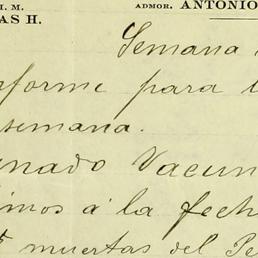 I. M. ADMOR. ANTONIO
AS H.
Semana
forme para l
semana.
nado Vacun
imos á la fech
muertas del Pe